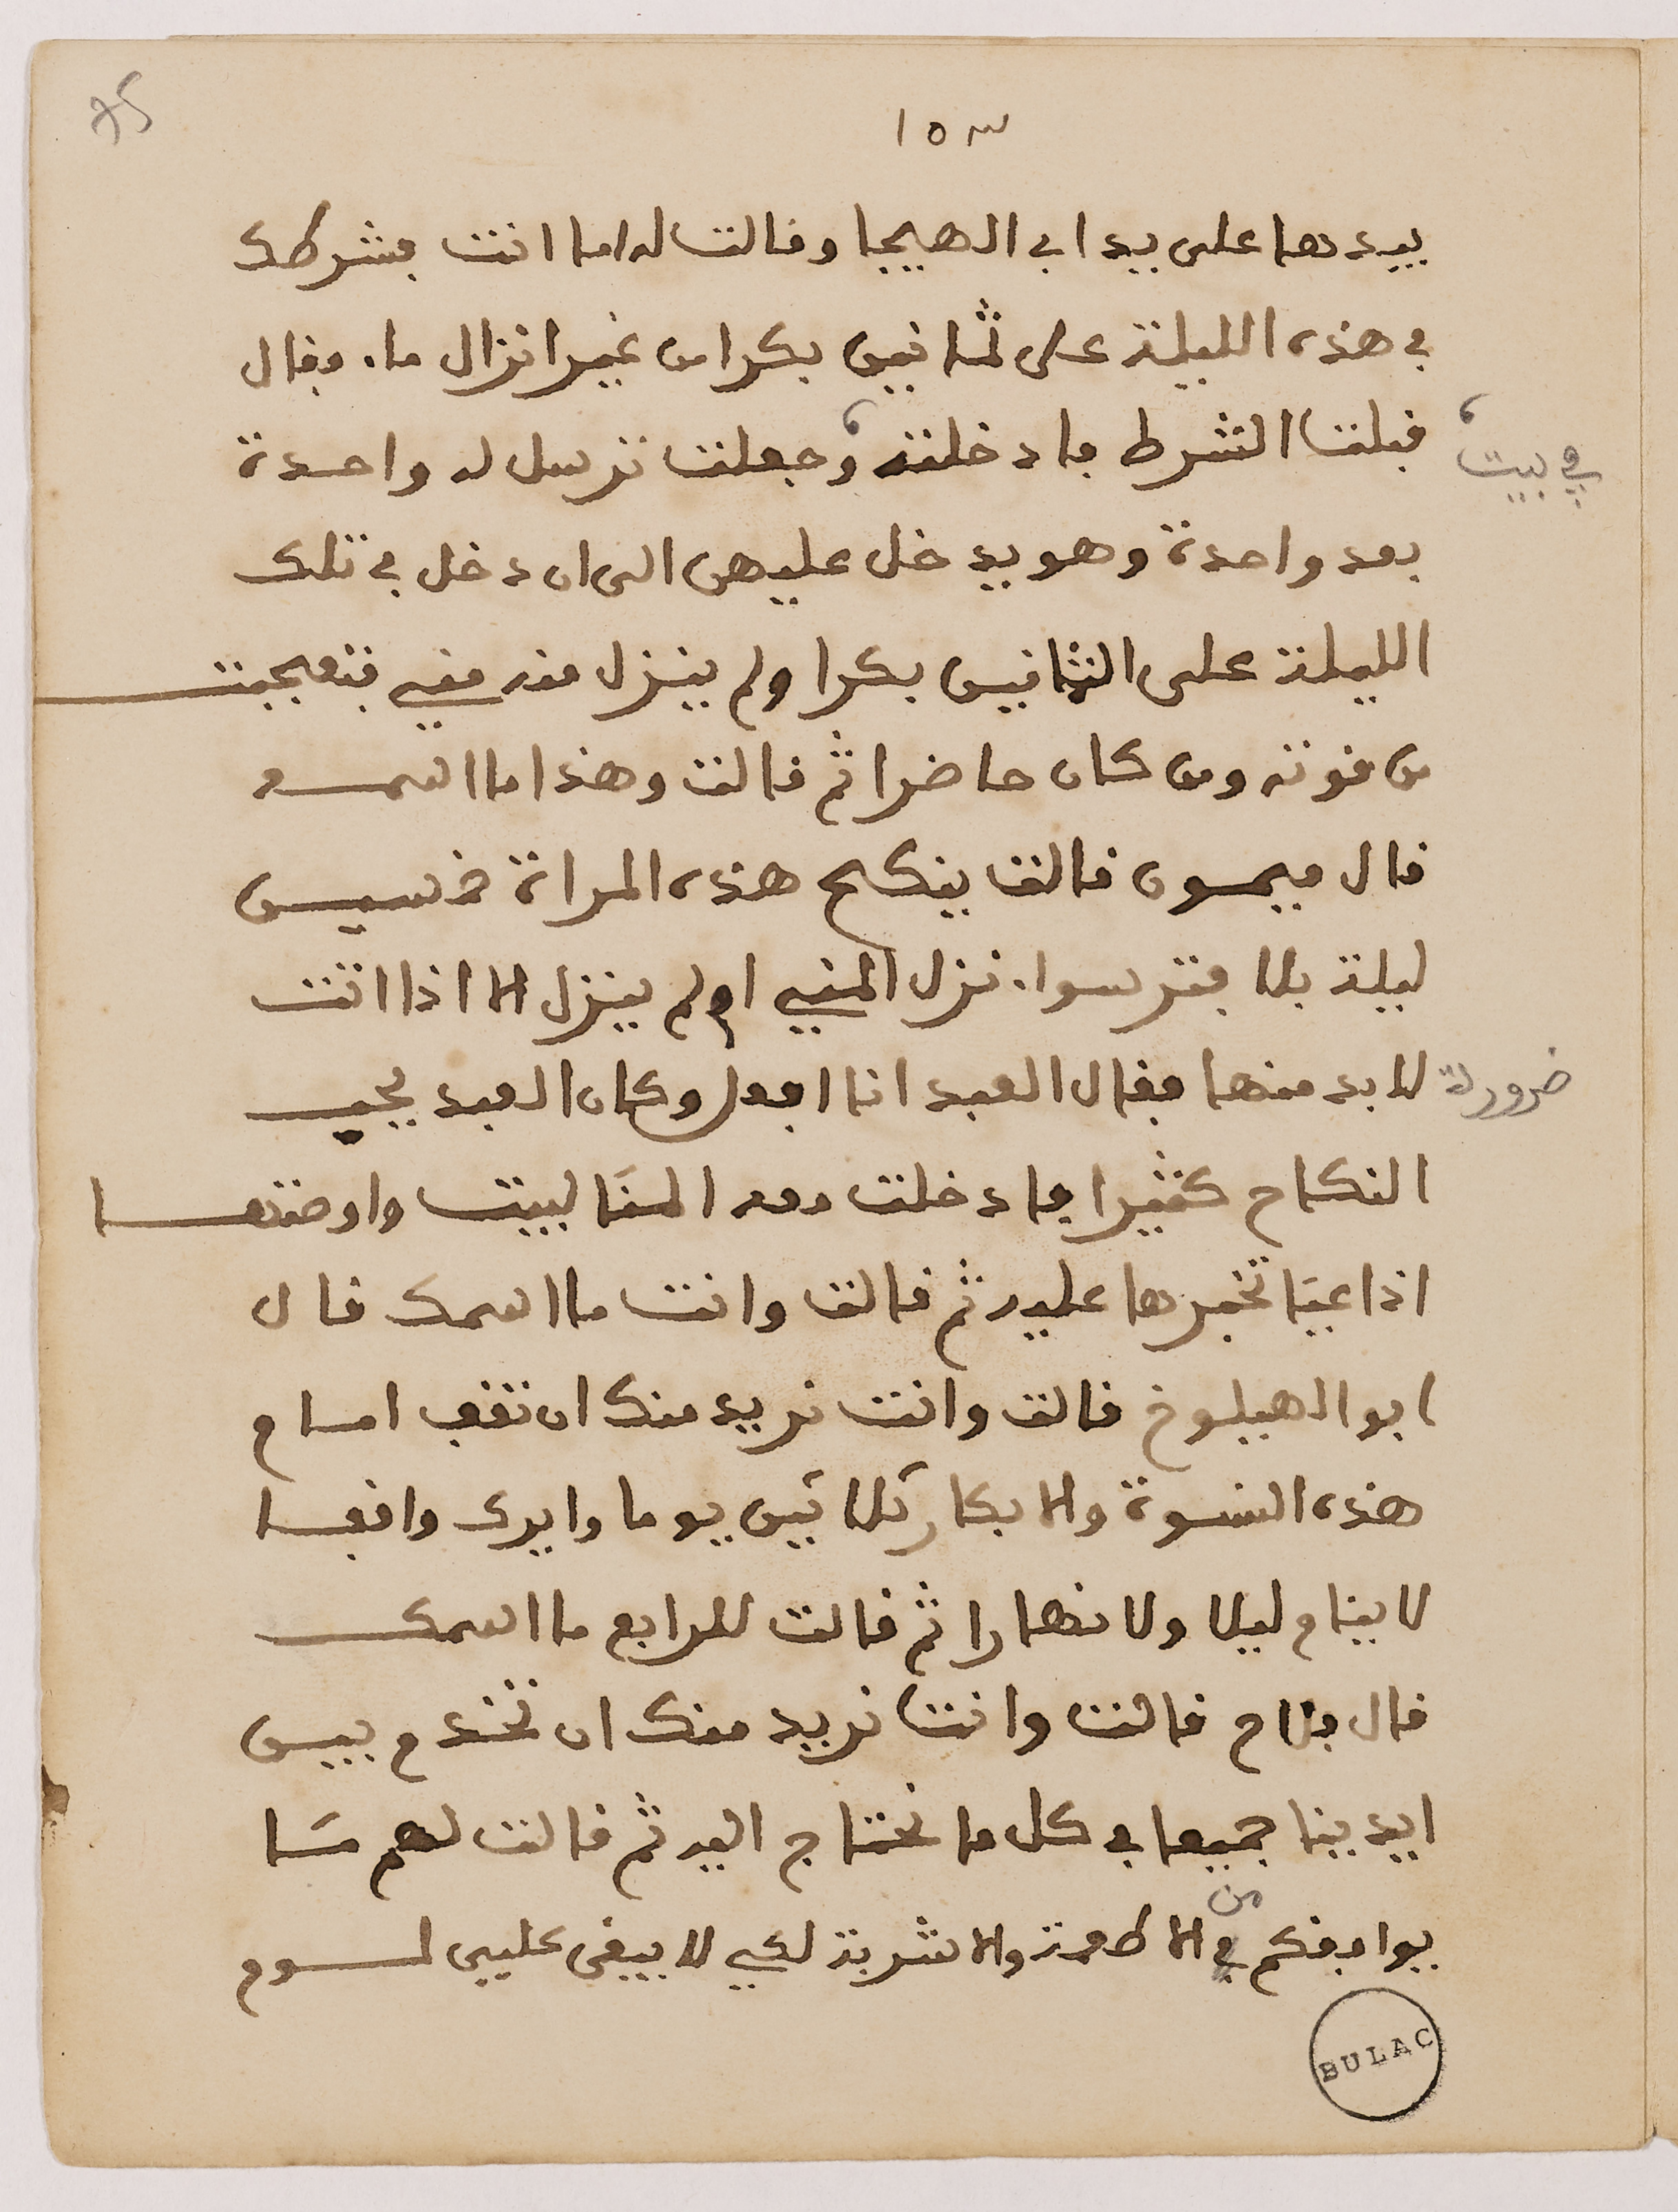 75
١٥٣
بيدها على يد ابي الهيجا وقالت له اما انت بشرطك
في هذه الليلة على ثمانين بكرا من غير انزال ماء فقال
قبلت الشرط فادخلته وجعلت ترسل له واحدة
في بيت
بعد واحدة وهو يدخل عليهن الى ان دخل في تلك
الليلة على الثمانين بكرا ولم ينزل منه مني فتعجبت
من قوته ومن كان حاضرا ثم قالت وهذا ما اسمه
قال ميمون قالت ينكح هذه المراة خمسين
ليلة بلا فتر سواء نزل المني او لم ينزل الا اذا اتت
لا بد منها فقال العبد انا افعل وكان العبد يحب
ضرورة
النكاح كثيرا فادخلت معه المنا لبيت واوصتها
اذا عيّا تخبرها عليه ثم قالت وانت ما اسمك قال
ابو الهيلوخ قالت وانت نريد منك ان تقف امام
هذه النسوة والابكار ثلاثين يوما وايرك واقفا
لا ينام ليلا ولا نهارا ثم قالت للرابع ما اسمك
قال فلاح قالت وانت نريد منك ان تخدم بين
ايدينا جميعا في كل ما نحتاج اليه ثم قالت لهم ما
يوافقكم من الاطعمة والاشربة لكي لا يبقى عليي لوم
BULAC